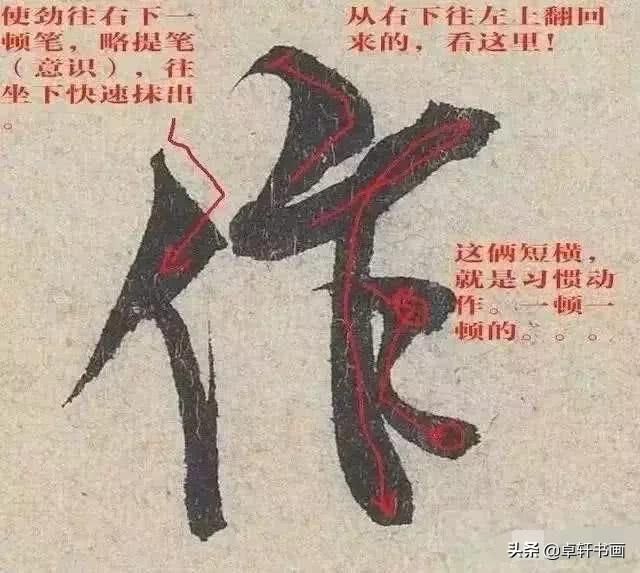 使劲往右下一
顿笔，略提笔
（意识），往
坐下快速抹出
。
从右下往左上翻回
来的，看这里！
作
这俩短横，
就是习惯动
作。一顿一
顿的。。。
头条@卓轩书画